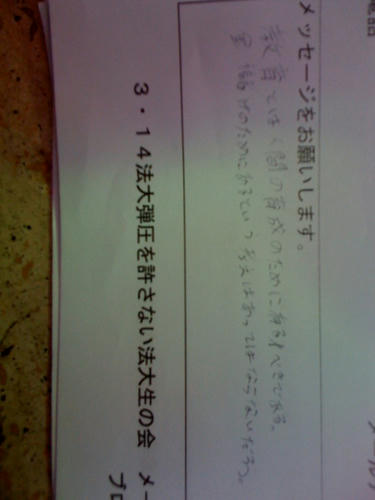 電話
メッセージをお願いします。
教育とは人間の育成のために有るべきである。
金儲けのためにあるという考えはあってはならないだろう。
3・14法大弾圧を許さない法大生の会
メー
ブロ